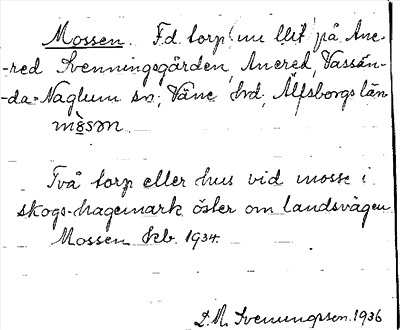 Mossen. F.d. torp (nu llt) på Ane-
-red Svenningsgården, Anered, Vassän-
-da-Naglum sn; Väne hd, Älfsborgs län
mòsan
Två torp eller hus vid mosse i
skogs-hagemark öster om landsvägen
Mossen kb. 1934.
D. A. Svenungsson. 1936